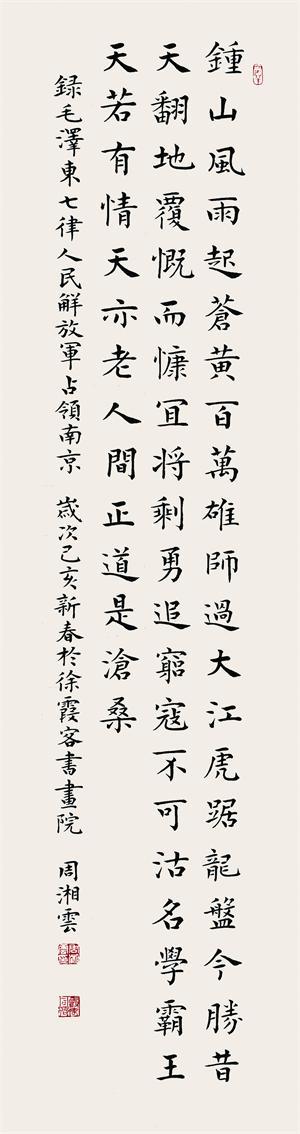 鍾山風雨起蒼黃百萬雄師過大江虎踞龍盤今勝昔
天翻地覆慨而慷宜將剩勇追窮寇不可沽名學霸王
天若有情天亦老人間正道是滄桑
録毛澤東七律人民解放軍占領南京 歲次己亥新春於徐霞客書畫院 周湘雲